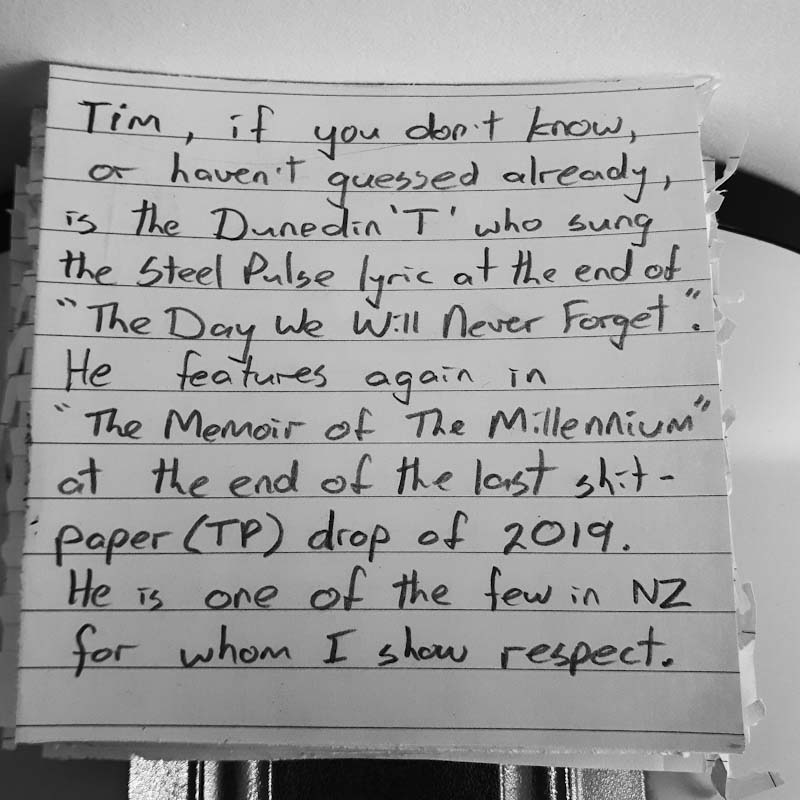 Tim, if you don't know,
or haven't guessed already,
is the Dunedin 'T' who sung
the Steel Pulse lyric at the end of
"The Day We Will Never Forget".
He features again in
"The Memoir of The Millennium"
at the end of the last shit-
paper (TP) drop of 2019.
He is one of the few in NZ
for whom I show respect.